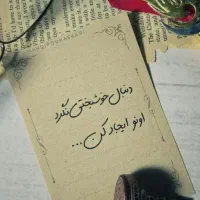 دنبال خوشبختی نگرد
اونو ایجاد کن ...